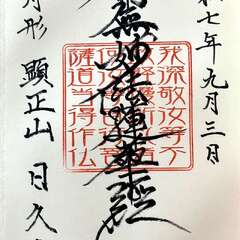 和七年九月三日
無妙法蓮華経
我深敬汝等不
敢軽慢所以者
何汝等皆行菩
薩道当得作仏
月形 顕正山 日久